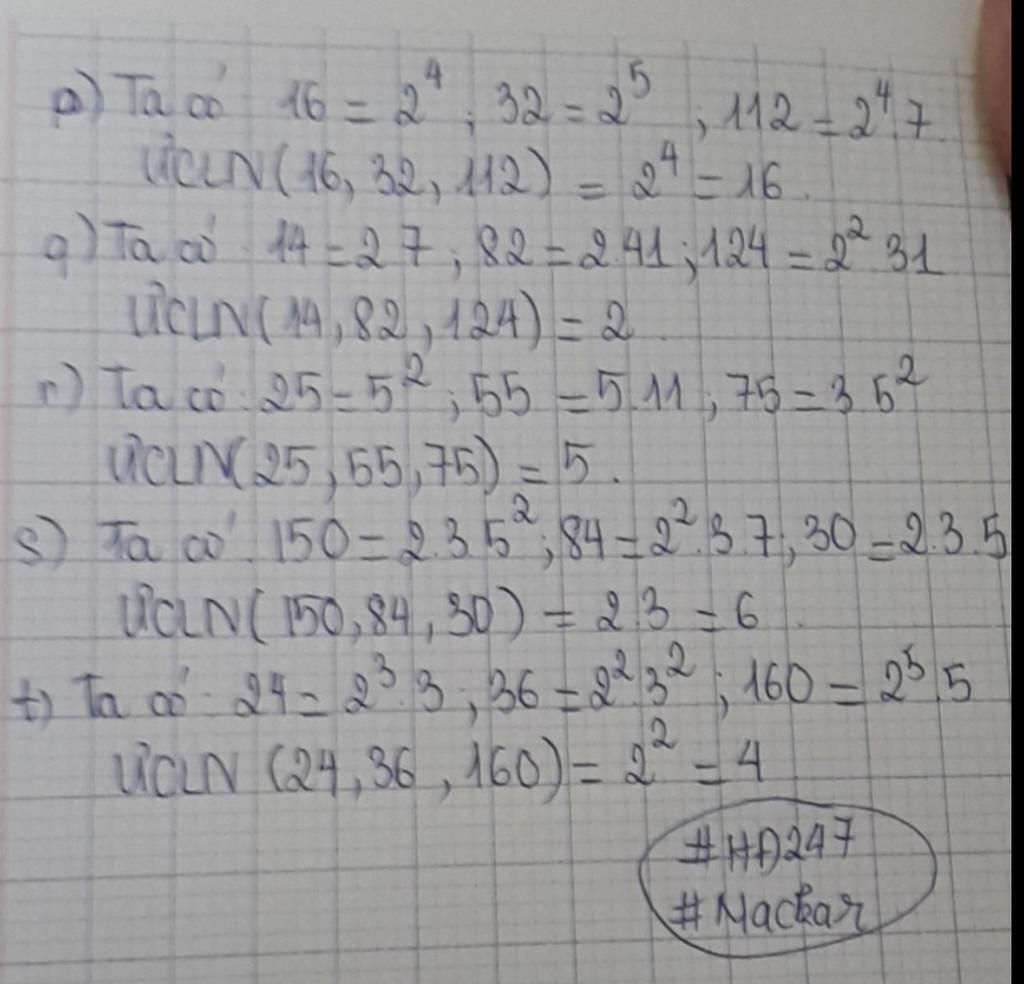 p) Ta có 16 = 2⁴ ; 32 = 2⁵ ; 112 = 2⁴.7
ƯCLN(16, 32, 112) = 2⁴ = 16.
q) Ta có 14 = 2 7 ; 82 = 2.41 ; 124 = 2² 31
ƯCLN(14, 82, 124) = 2
r) Ta có: 25 = 5² ; 55 = 5.11 ; 75 = 3 5²
ƯCLN(25, 55, 75) = 5.
s) Ta có 150 = 2.3.5² ; 84 = 2².3.7, 30 = 2.3.5
ƯCLN(150, 84, 30) = 2.3 = 6.
t) Ta có 24 = 2³.3 ; 36 = 2².3² ; 160 = 2⁵.5
ƯCLN (24, 36, 160) = 2² = 4
#HD247